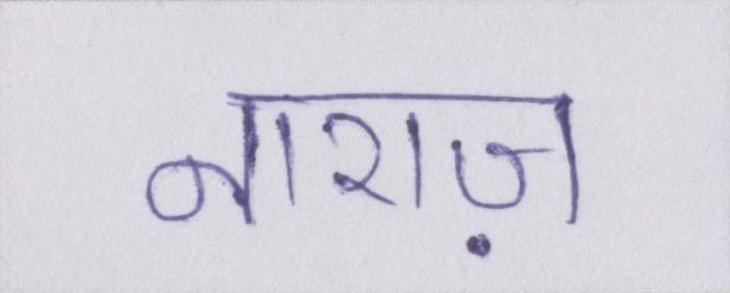 नाराज़